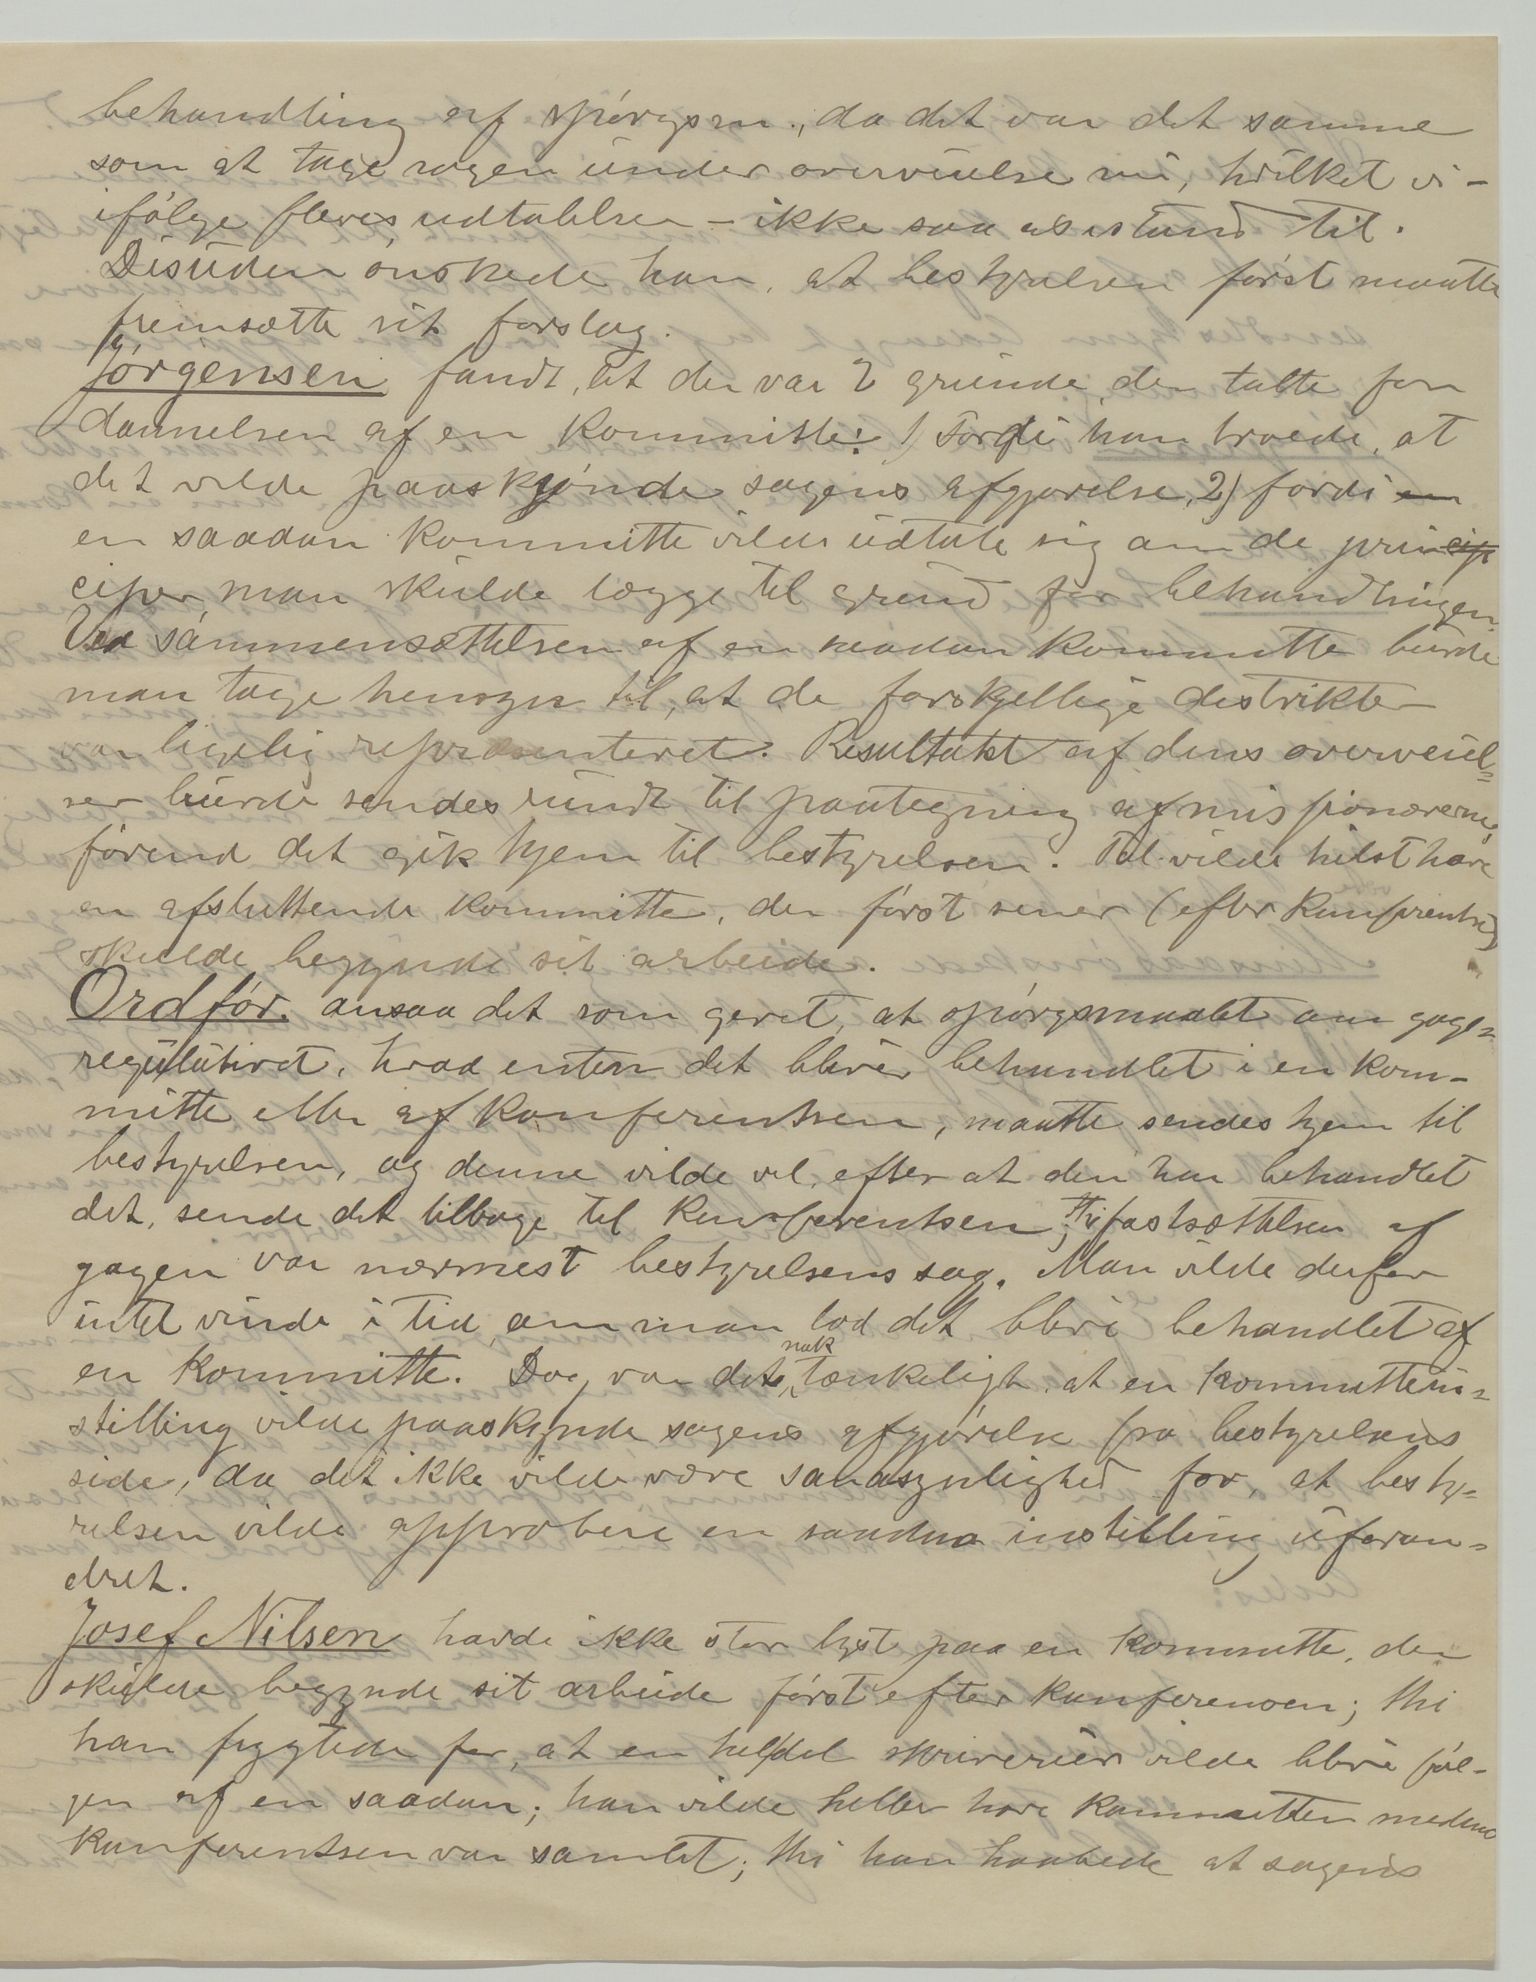 behandling af spörgsm., da det var det samme
som at tage sagen under overveielse nu, hvilket vi -
ifölge fleres udtalelser - ikke saa os istand til.
Desuden önskede han, at bestyrelsen först maatte
fremsætte sit forslag.
Jörgensen fandt, at der var 2 grunde, der talte for
dannelsen af en kommitte: 1) fordi han troede, at
det vilde paaskjönde sagens afgjörelse, 2) fordi en
en saadan kommitte vilde udtale sig om de prin cip
ciper, man skulde lægge til grund for behandlingen.
Ved sammensættelsen af en saadan kommitte burde
man tage hensyn til, at de forskjellige distrikter
var ligelig repræsenteret. Resultatet af dens overveiel=
ser burde sendes rundt til paategning af missionærerne,
förend det gik hjem til bestyrelsen. Tal. vilde helst have
en afsluttende kommitte, der först senere (efter konferentsen)
skulde begynde sit arbeide.
Ordför. ansaa det som givet, at spörgsmaalet om gage=
regulativet, hvad enten det bliver behandlet i en kom-
mitte eller af konferentsen, maatte sendes hjem til
bestyrelsen, og denne vilde vel, efter at den har behandlet
det, sende det tilbage til konferentsen; thi fastsættelsen af
gagen var nærmest bestyrelsens sag. Man vilde derfor
intet vinde i tid, om man lod det blive behandlet af
en kommitte. Dog var det nok tænkeligt, at en kommittein=
stilling vilde paaskynde sagens afgjörelse fra bestyrelsens
side, da det ikke vilde være sandsynlighed for, at besty=
relsen vilde approbere en saadan instilling uforan=
dret.
Josef Nilsen havde ikke stor lyst paa en kommitte, der
skulde begynde sit arbeide först efter konferensen; thi
han frygtede for, at en heldel skriverier vilde blive föl-
gen af en saadan; han vilde heller have kommitteen medens
konferentsen var samlet; thi han haabede at sagens